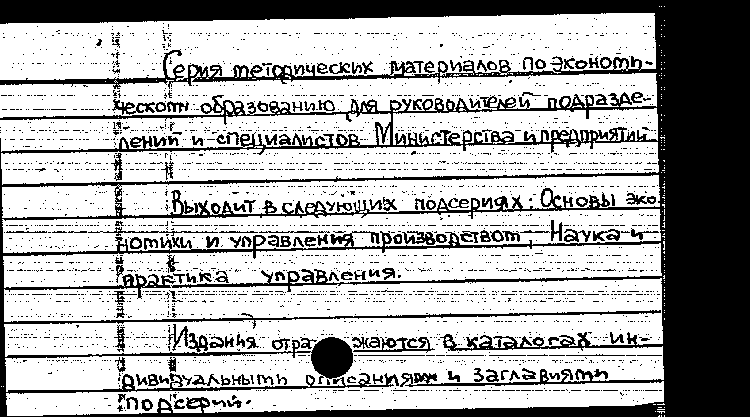 Серия методических материалов по экономи-
ческому образованию для руководителей подразде-
лений и специалистов Министерства и предприятий
Выходит в следующих подсериях: Основы эко-
номики и управления производством; Наука и
практика управления.
Издания отражаются в каталогах ин-
дивидуальными описаниями и заглавиями
подсерий.